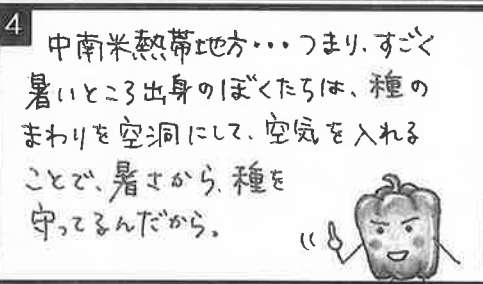 4
中南米熱帯地方・・・つまり、すごく
暑いところ出身のぼくたちは、種の
まわりを空洞にして、空気を入れる
ことで、暑さから、種を
守ってるんだから。